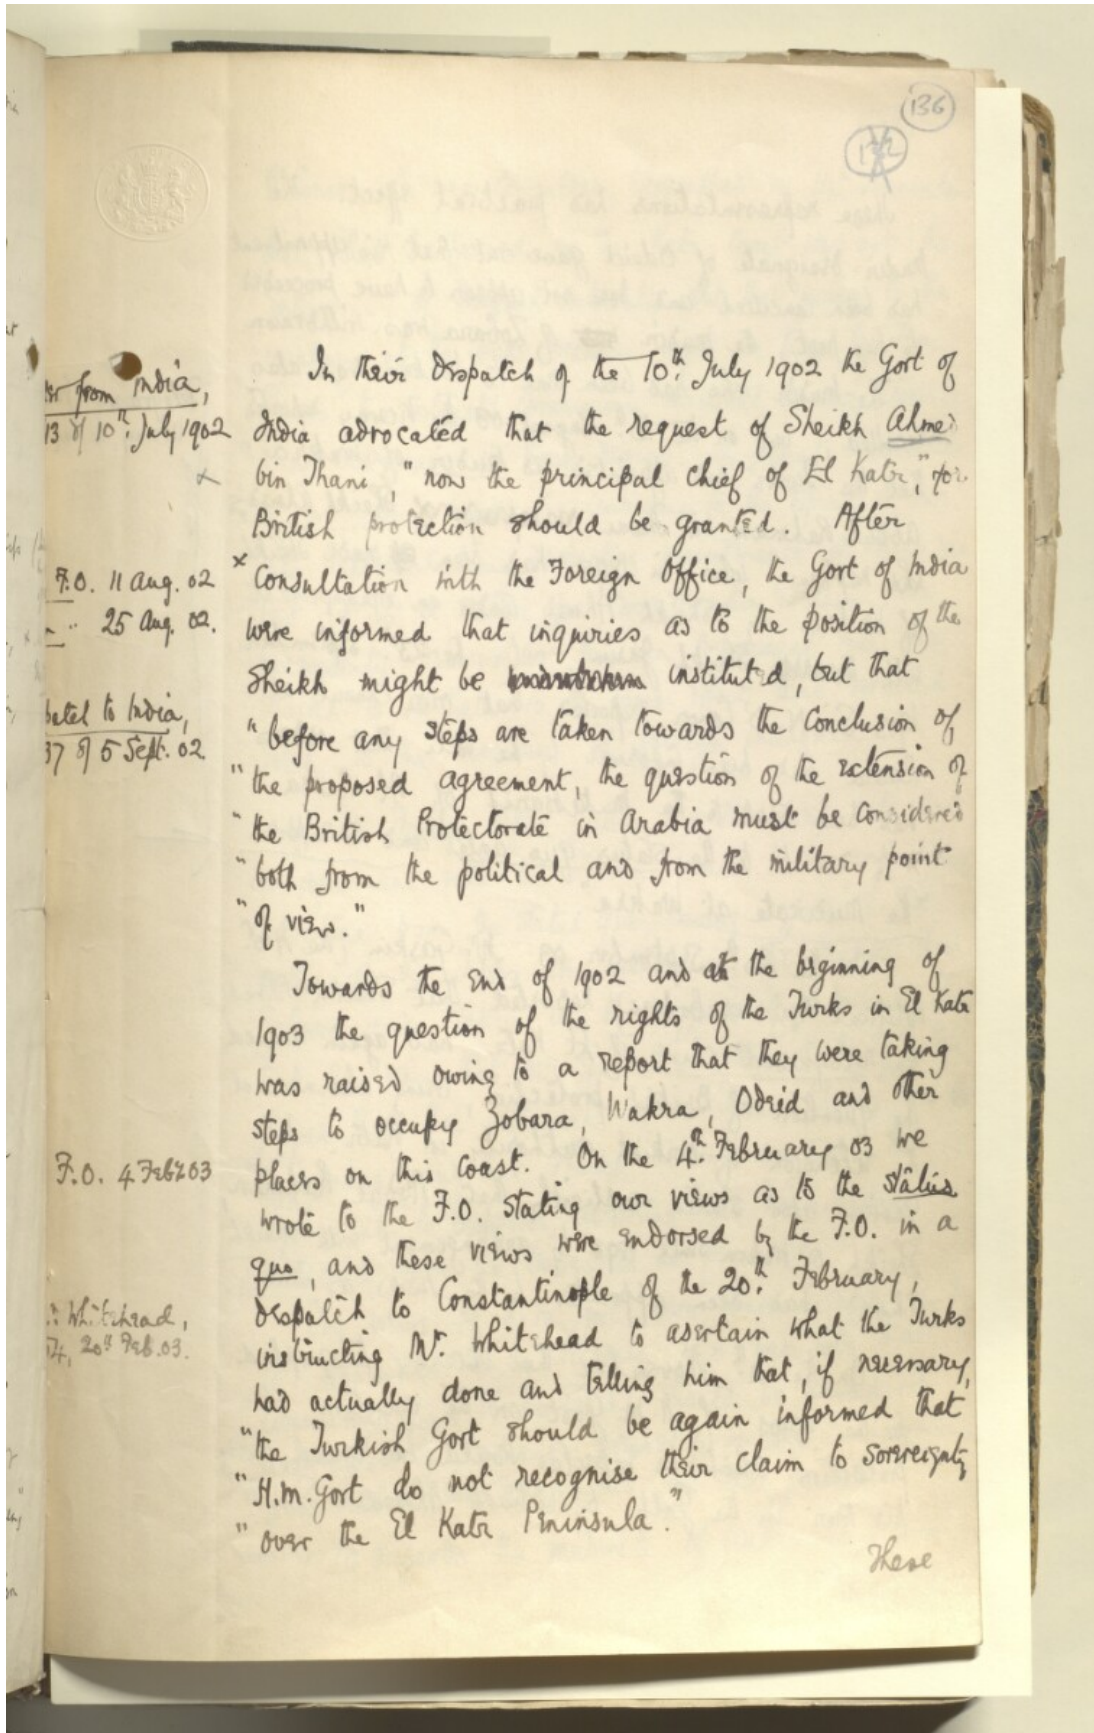 136
In their Despatch of the 10th July 1902 the Govt of
from India,
13 of 10th July 1902
India advocated that the request of Sheikh Ahmed
bin Thani, "now the principal chief of El Katr," for
British protection should be granted. After
F.O. 11 Aug. 02
x Consultation with the Foreign Office, the Govt of India
" 25 Aug. 02.
were informed that inquiries as to the position of the
Sheikh might be instituted, but that
to India,
37 of 5 Sept. 02
"before any steps are taken towards the conclusion of
"the proposed agreement, the question of the extension of
"the British Protectorate in Arabia must be considered
"both from the political and from the military point
"of view."
Towards the end of 1902 and at the beginning of
1903 the question of the rights of the Turks in El Katr
was raised owing to a report that they were taking
steps to occupy Zobara, Wakra, Odeid and other
F.O. 4 Feb 03
places on this coast. On the 4th February 03 we
wrote to the F.O. stating our views as to the status
quo, and these views were endorsed by the F.O. in a
despatch to Constantinople of the 20th February,
Whitehead,
20th Feb. 03.
instructing Mr. Whitehead to asertain what the Turks
had actually done and telling him that, if necessary,
"the Turkish Govt should be again informed that
"H.M. Govt do not recognise their claim to sovereignty
"over the El Katr Peninsula."
These